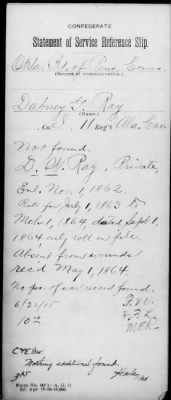 CONFEDERATE
Statement of Service Reference Slip.
Okla. Bd. of Pen. Coms.
(Source of communication.)
Dabney Ray
(Name.)
Co. S. 11 Reg't Ala. Cav.
Not found.
D. W. Ray, Private,
Enl. Nov. 1, 1862
Roll for July 1, 1863 to
Mch 1, 1864, dated Sept 1,
1864 only roll on file,
Absent from wounds
recd May 1, 1864.
No per. of war record found.
6/22/15
Nothing additional found.
Form No. A. G. O.